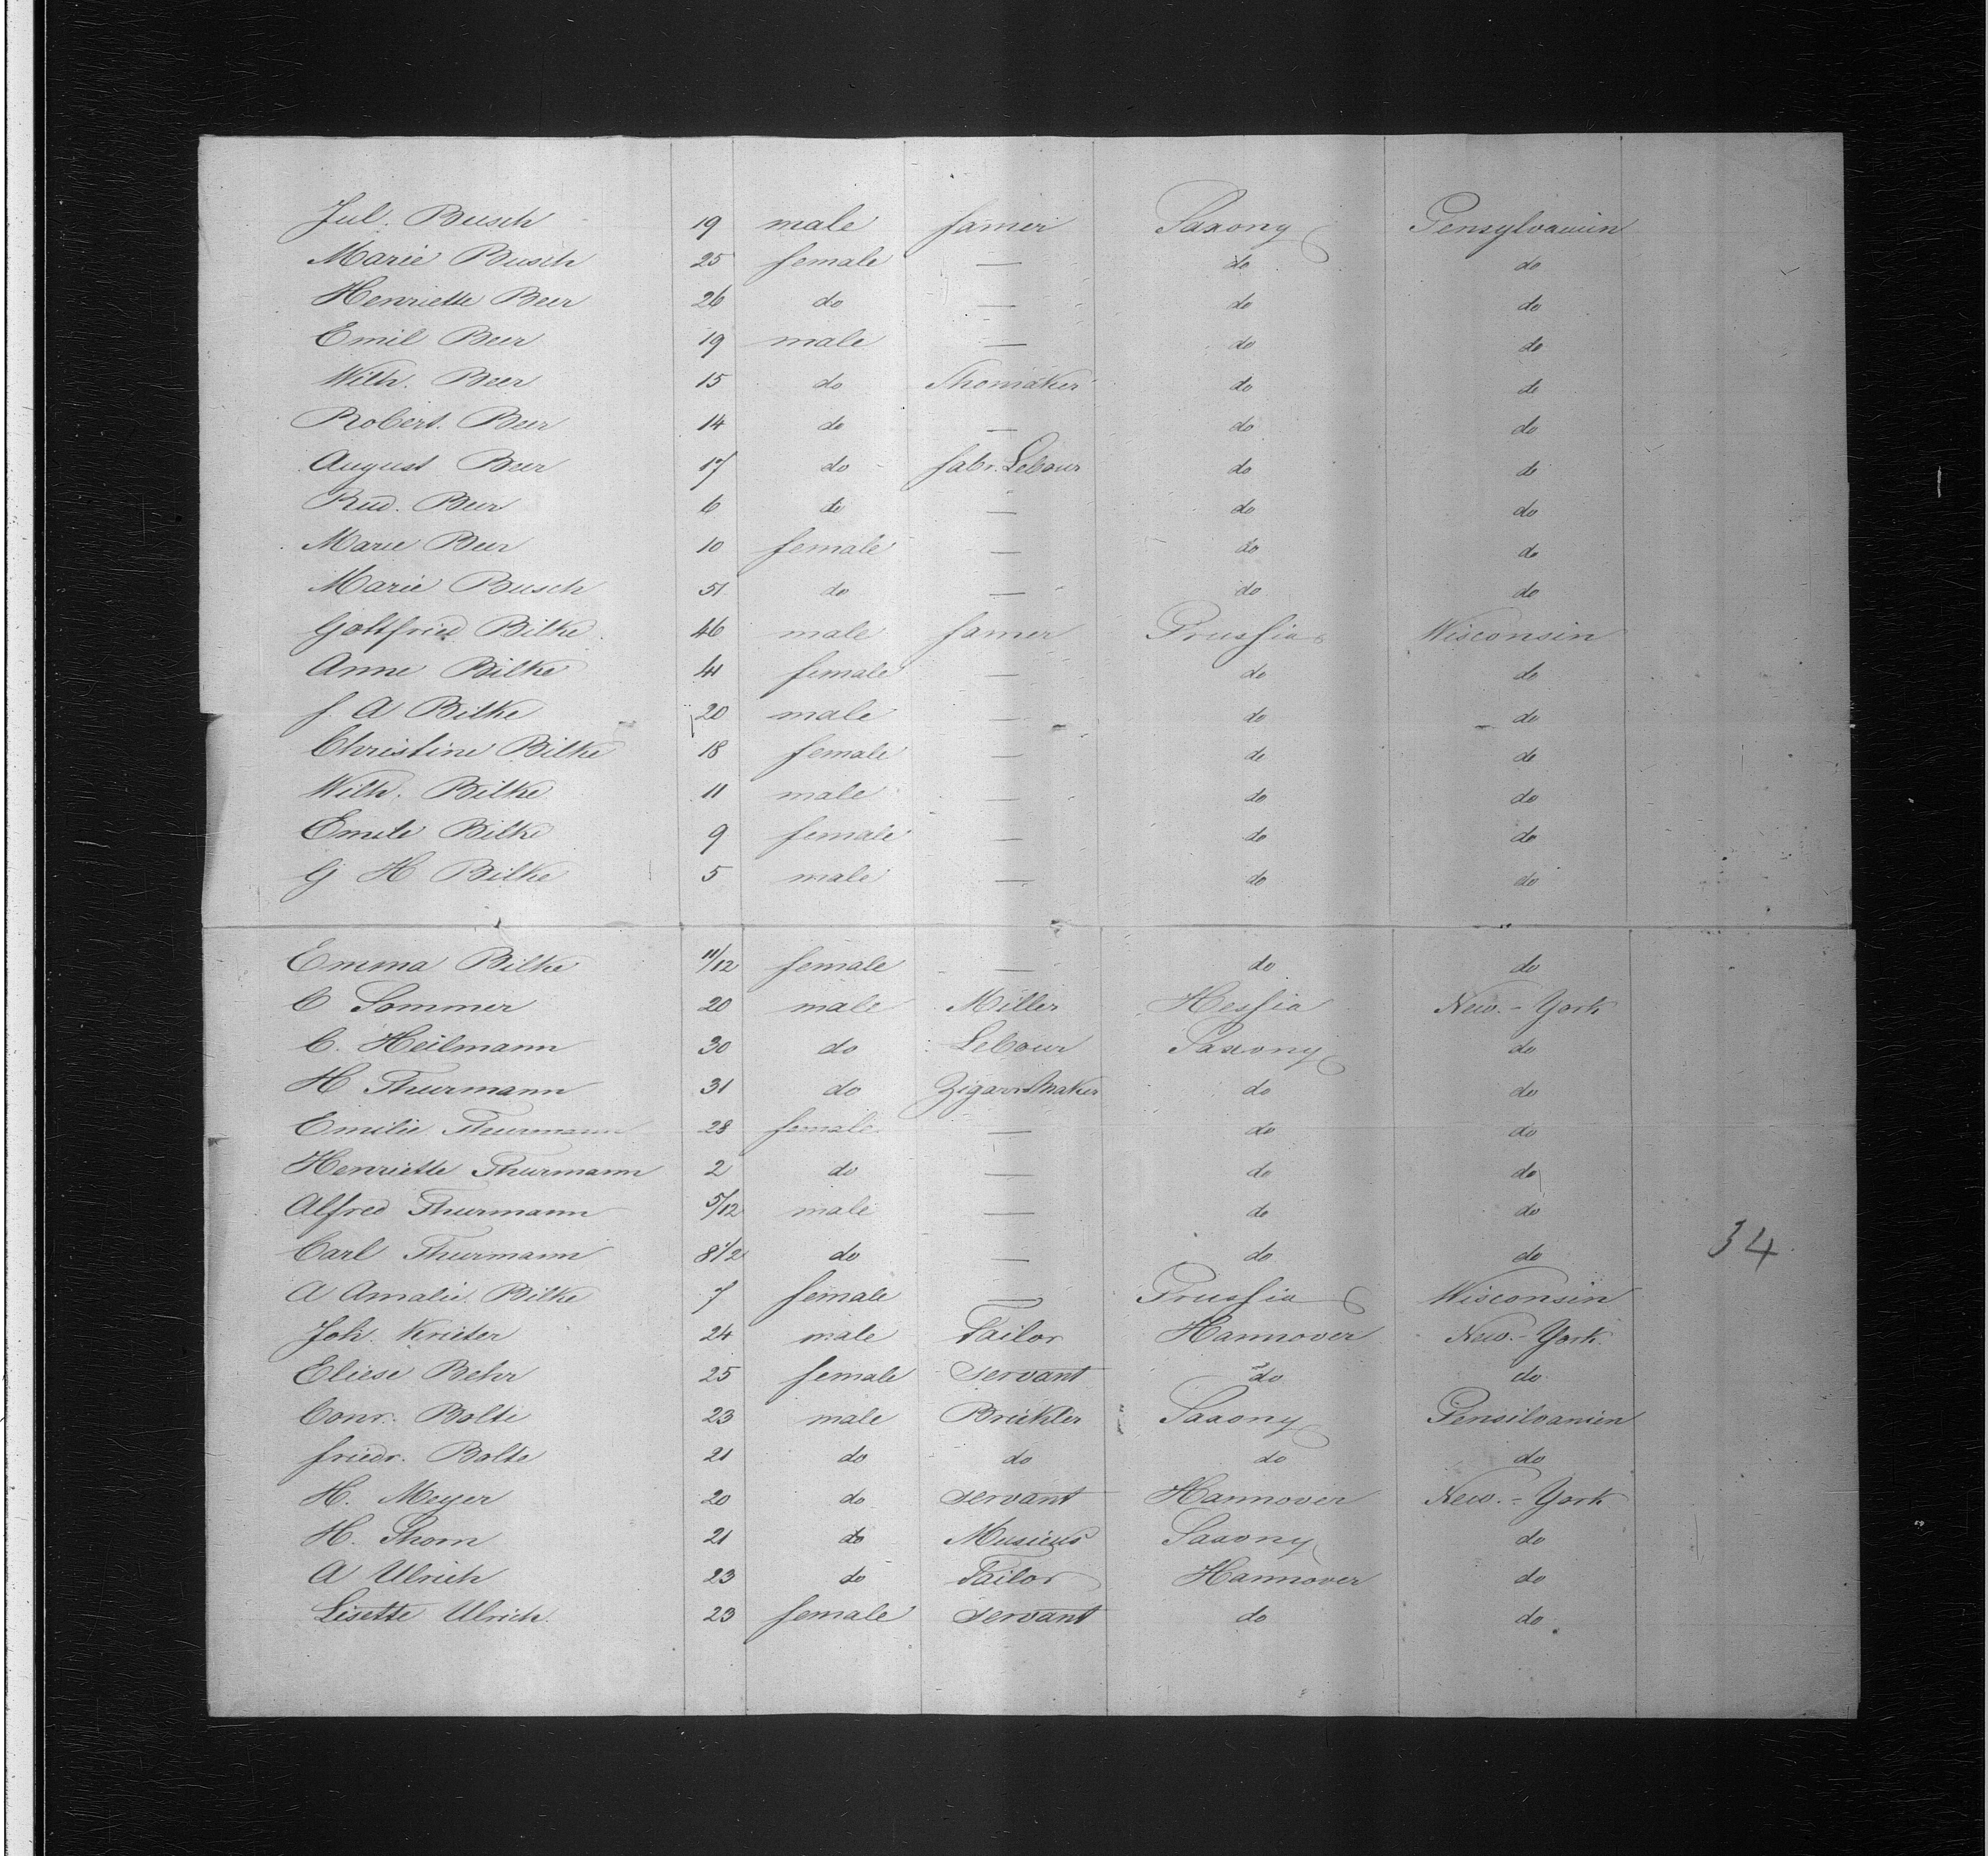 Jul. Busch 19 male famer Saxony Pensylvanien
Marie Busch 25 female — do do
Henriette Beer 26 do — do do
Emil Beer 19 male — do do
Wilh. Beer 15 do Shomaker do do
Robert. Beer 14 do — do do
August Beer 17 do fabr. Lebour do do
Rud. Beer 6 do — do do
Marie Beer 10 female — do do
Marie Busch 51 do — do do
Gottfried Bilke 46 male famer Prussia Wisconsin
Anne Bilke 41 female — do do
f. A Bilke 20 male — do do
Christine Bilke 18 female — do do
Wilh. Bilke 11 male — do do
Emile Bilke 9 female — do do
G H Bilke 5 male — do do
Emma Bilke 11/12 female — do do
C Sommer 20 male Miller Hessia New.-York
C. Heilmann 30 do Lebour Saxony do
H Thurmann 31 do Zigarrsmaker do do
Emilie Thurmann 28 female — do do
Henriette Thurmann 2 do — do do
Alfred Thurmann 5/12 male — do do
Carl Thurmann 8 1/2 do — do do
34
A Amalie Bilke 7 female — Prussia Wisconsin
Joh. Krieter 24 male Tailor Hannover New.-York
Eliese Behr 25 female servant do do
Conr. Bolte 23 male Saxony Pensilvanien
friedr. Bolte 21 do do do do
H. Meyer 20 do servant Hannover New.-York
H. Thorn 21 do Musicus Saxony do
A Ulrich 23 do Tailor Hannover do
Lisette Ulrich. 23 female servant do do